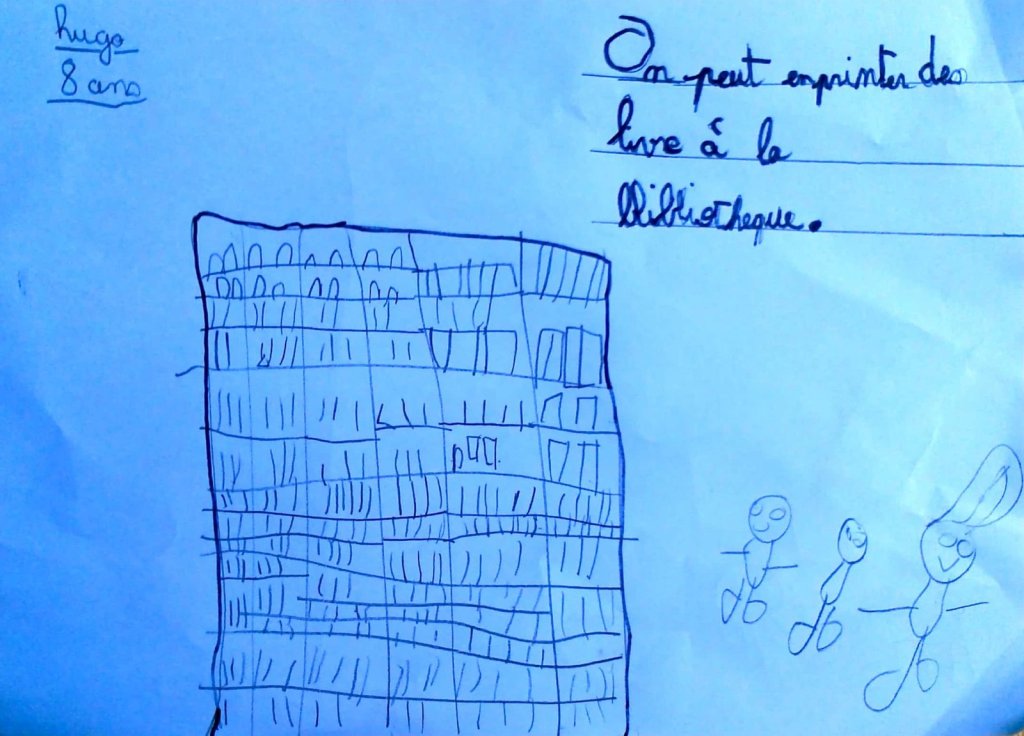 hugo
8 ans
On peut enprinter des
livre à la
Bibliotheque.